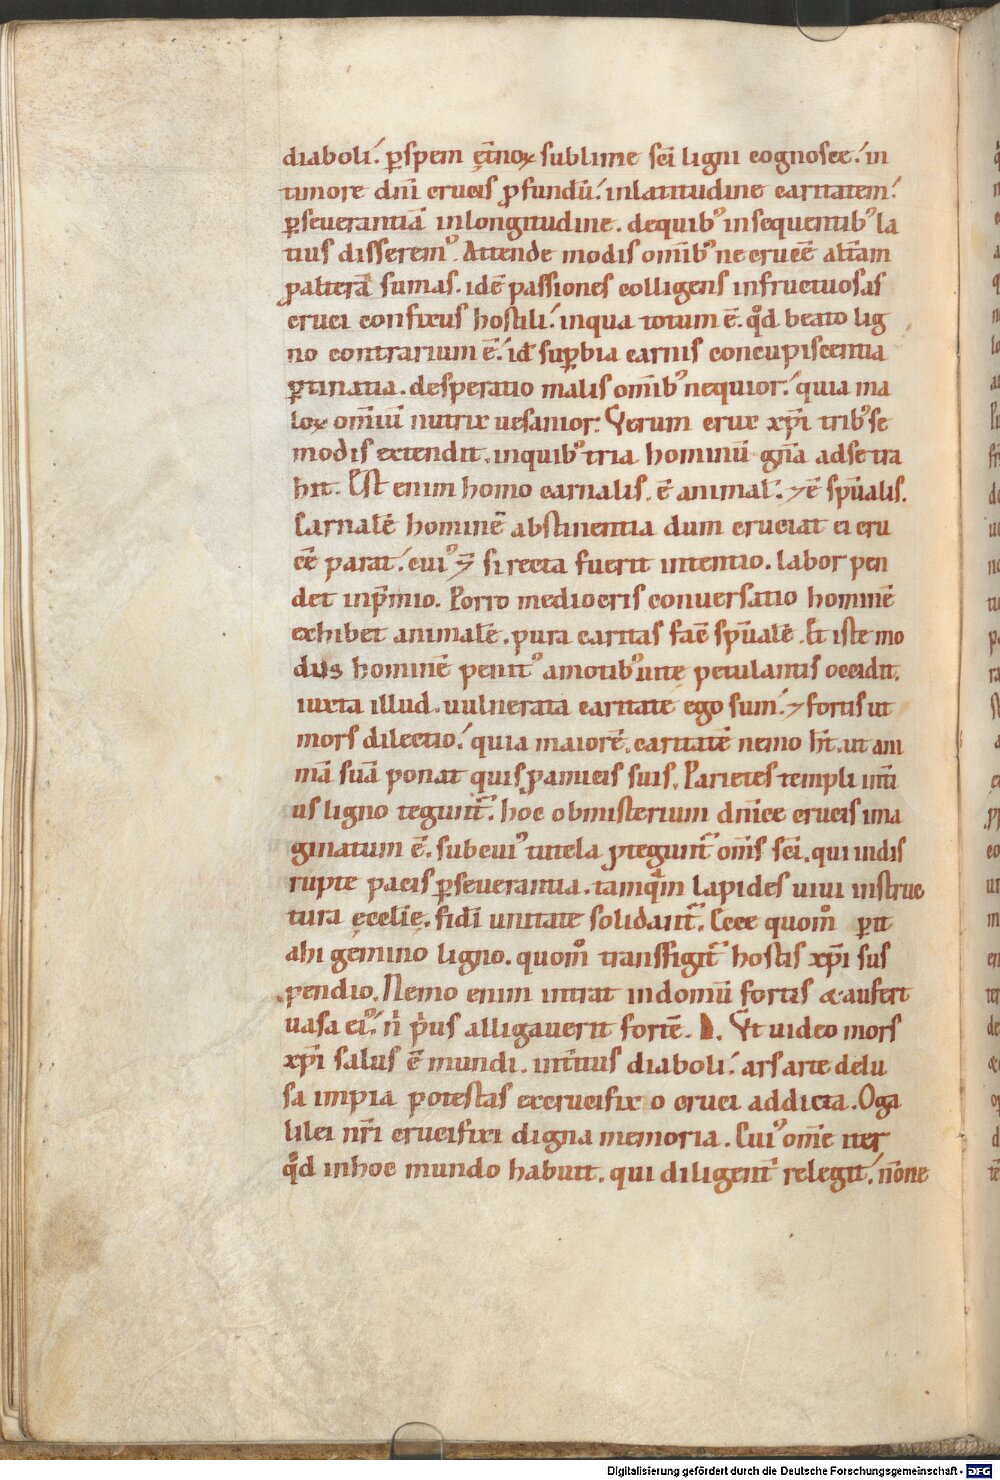 diaboli. ꝑ spem ęt̄noꝝ sublime sc̄i ligni cognosce. in
timore dn̄i crucis ꝓfundū. in latitudine caritatem.
ꝑseuerantiā in longitudine. de quib᾽ in sequentib᾽ la
tius disserem᾽. Attende modis om̄ib᾽ ne crucē alt̄am
ꝓ alterā sumas. idē passiones colligens infructuosas
cruci confixus hostili. in qua totum ē. qd̊ beato lig
no contrarium ē. id ē suꝑbia carnis concupiscentia
ꝑtinatia. desperatio malis om̄ib᾽ nequior. quia ma
loꝝ om̄iū nutrix uesanior. Verum crux xp̄i trib᾽ se
modis extendit. in quib᾽ tria hominū gn̄a ad se tra
hit. Est enim homo carnalis. ē animal̄. ⁊ ē sp̄ualis.
Carnalē hominē abstinentia dum cruciat ei cru
cē parat. cui᾽ ⁊̄ si recta fuerit intentio. labor pen
det in p̄mio. Porro mediocris conuersatio hominē
exhibet animalē. pura caritas facē sp̄ualē. Et iste mo
dus hominē penit᾽ a motib᾽ uitę petulantis occidit.
iuxta illud. uulnerata caritate ego sum. ⁊ fortis ut
mors dilectio. quia maiorē caritatē nemo ht̄. ut ani
mā suā ponat quis ꝓ amicis suis. Parietes templi int̄i
us ligno tegunt᷑. hoc ob misterium dn̄ice crucis ima
ginatum ē. sub cui᾽ tutela ꝓtegunt᷑ om̄s sc̄i. qui indis
rupte pacis ꝑseuerantia. tamquā in lapides uiui in struc
tura ęcclīę. fidī unitate solidant᷑. Ecce quom̊ ꝑit
ahi gemino ligno. quom̊ transfigit᷑ hostis xp̄i sus
pendio. Nemo enim intrat in domū fortis & aufert
uasa ei᾽. n̄ pͥus alligauerit fortē. D. Vt uideo mors
xp̄i salus ē mundi. int̄itus diaboli. ars arte delu
sa impia potestas excrucifixo cruci addicta. O ga
lilei nr̄i crucifixi digna memoria. Cui᾽ om̄e iter
qd̊ in hoc mundo habuit. qui diligent᷑ relegit. nonne
Digitalisierung gefördert durch die Deutsche Forschungsgemeinschaft - DFG